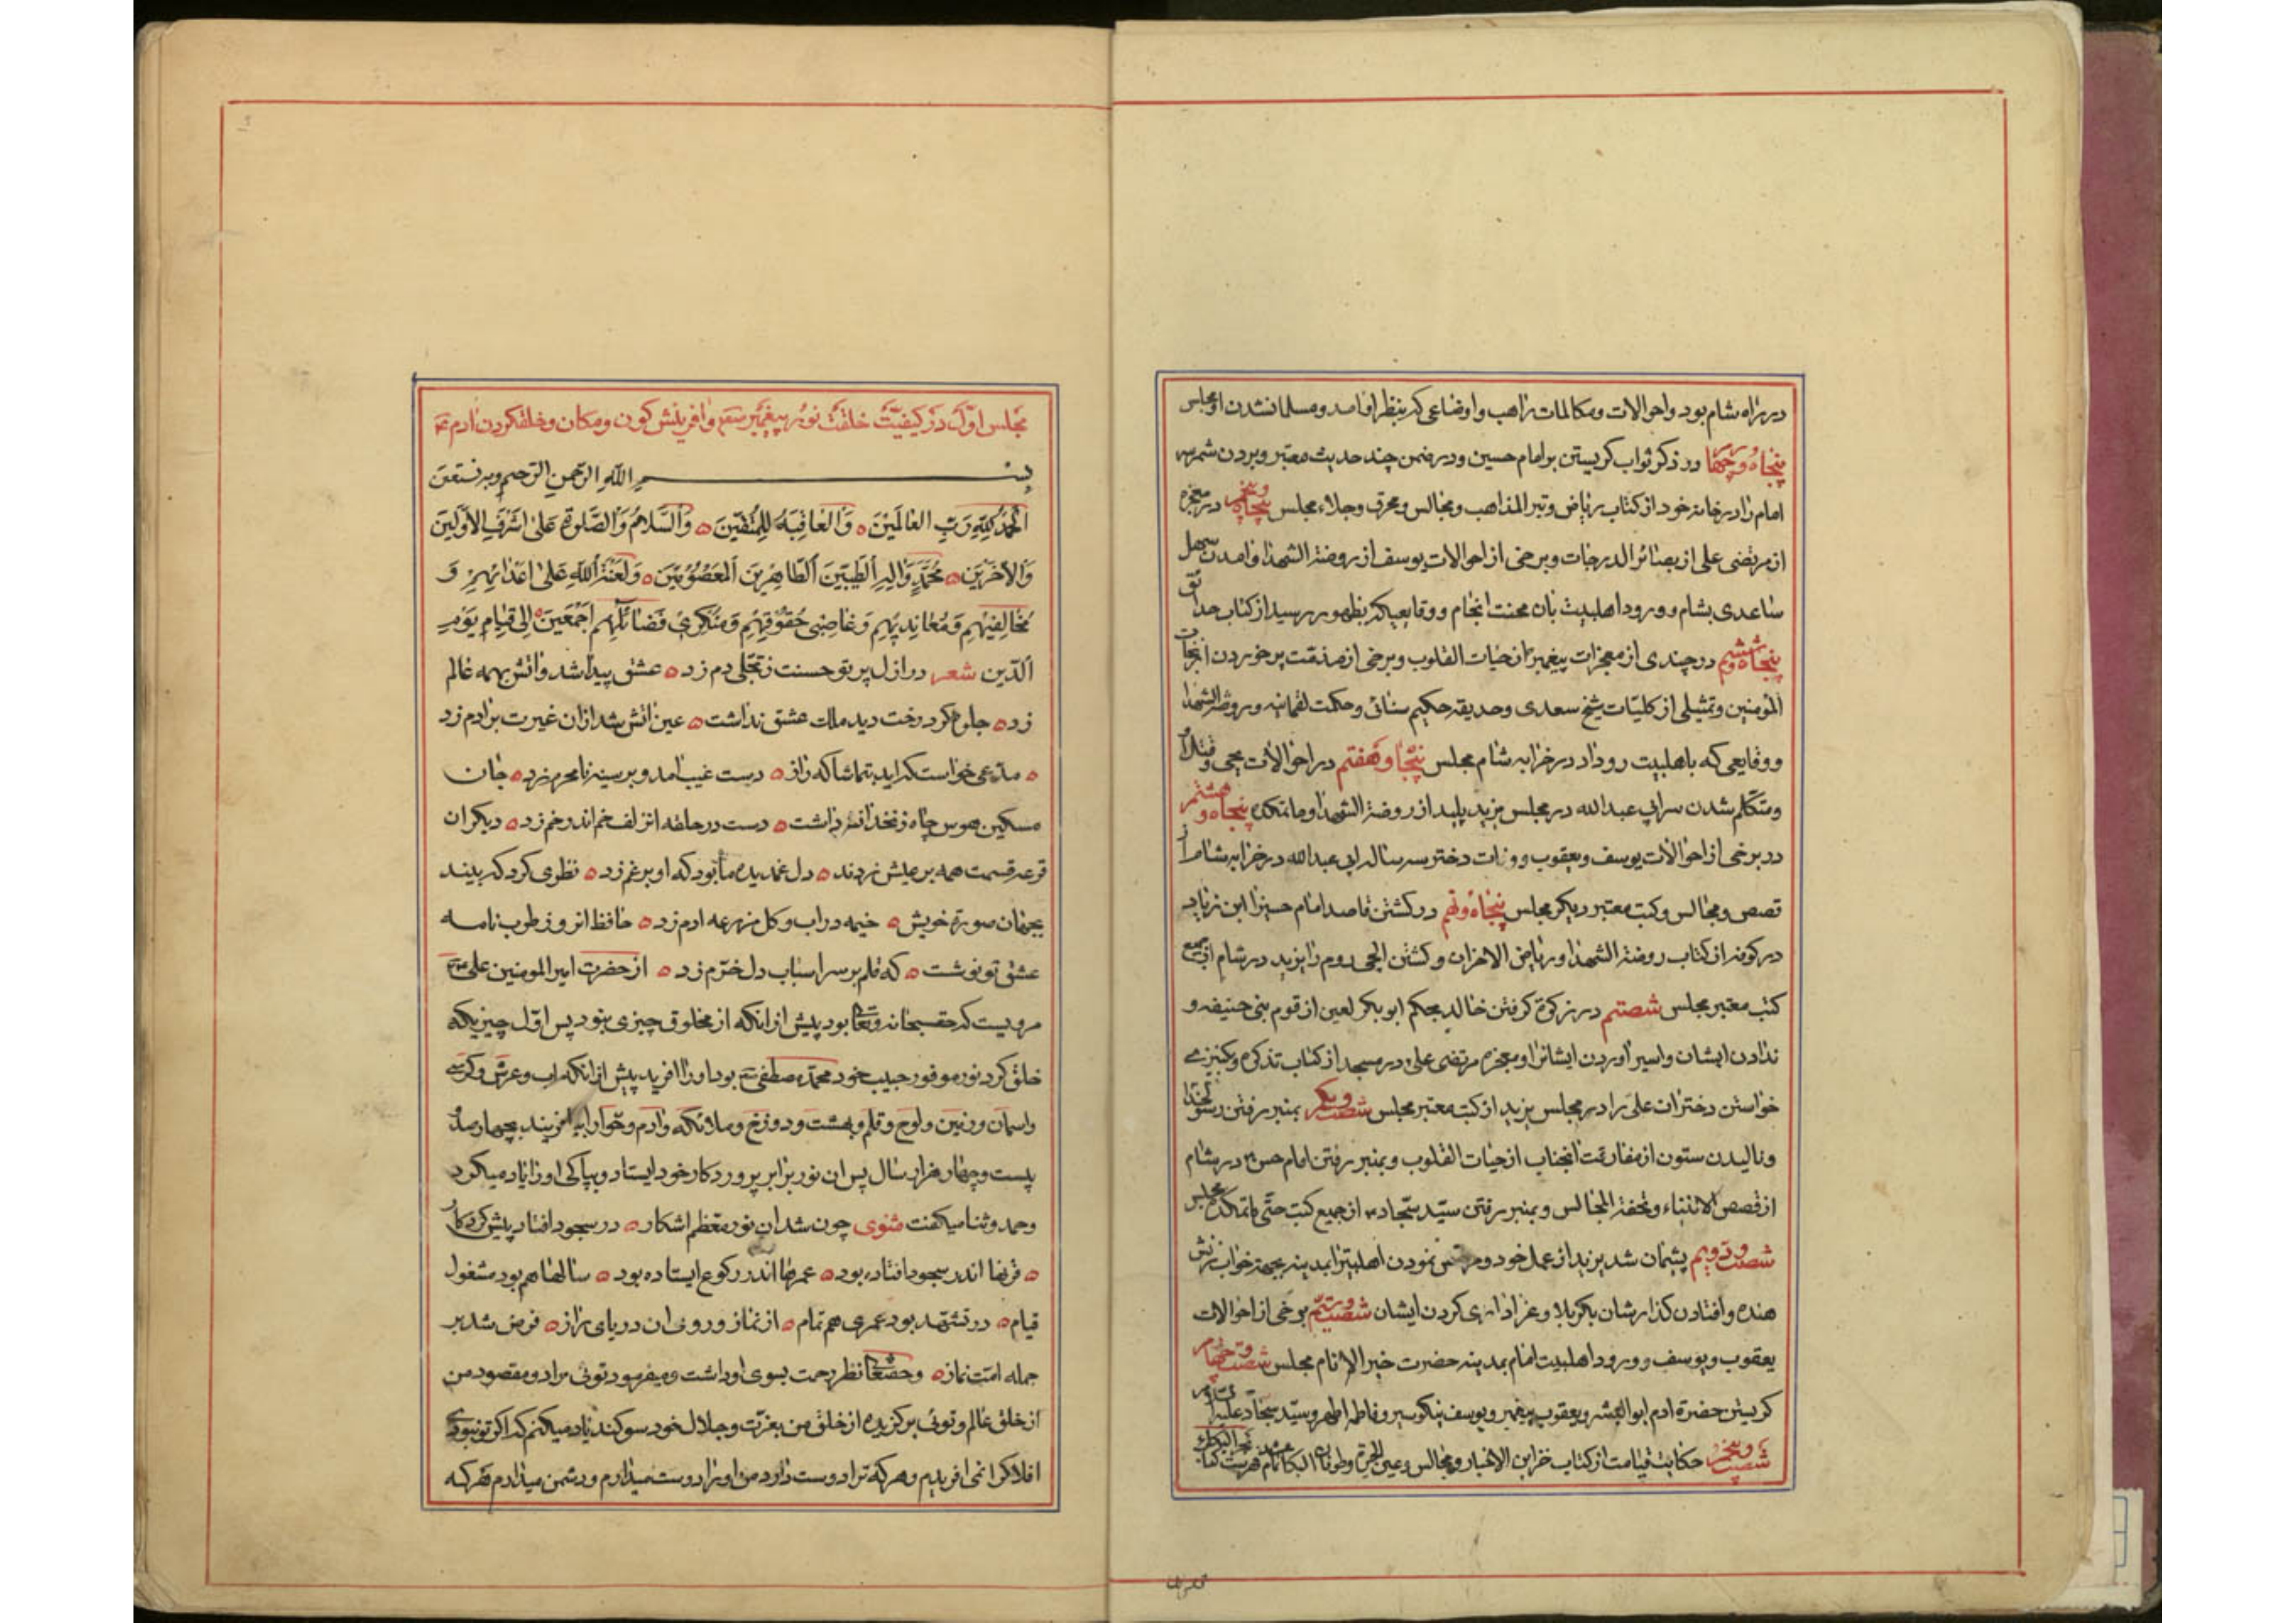 در راه شام بود و احوالات و مکالمات راهب و اوضاعی که بنظر او امد و مسلمان شدن او مجلس
پنجاه و چهار در ذکر ثواب کریستن بر امام حسین و در ضمن چند حدیث معتبر و بردن شمر سر
امام را در خانه خود از کتاب ریاض و تبر المذاهب و مجالس و محرق و جلاء مجلس پنجاه و پنجم در معجزه
از مرتضی علی از بصائر الدرجات و برخی از احوالات یوسف از روضة الشهدا و امدن سهل
ساعدی بشام و ورود اهلبیت بان محنت انجام و وقایعیکه بظهور رسید از کتاب حدائق
پنجاه و ششم در چندی از معجزات پیغمبر از حیات القلوب و برخی از
المؤمنین و تمثیلی از کلیات شیخ سعدی و حدیقه حکیم سنائی و حکمت لقمانیه و روضة الشهدا
و وقایعی که باهلبیت رو داد در خرابه شام مجلس پنجا و هفتم در احوالات یحیی و قتل او
و متکلم شدن سر ابی عبدالله در مجلس یزید پلید از روضة الشهدا و ماتمکده پنجاه و هشتم
در برخی از احوالات یوسف و یعقوب و وفات دختر سه ساله ابی عبدالله در خرابه شام از
قصص و مجالس و کتب معتبر دیکر مجلس پنجاه و نهم در کشتن قاصد امام حسین را ابن زیاد
در کوفه از کتاب روضة الشهدا و ریاض الاحزان و کشتن ایلچی روم را یزید در شام از جمیع
کتب معتبر مجلس شصتم در زکوة کرفتن خالد بحکم ابو بکر لعین از قوم بنی حنیفه و
ندادن ایشان و اسیر اوردن ایشانرا و معجزه مرتضی علی در مسجد از کتاب تذکره و کنیزی
خواستن دختران علی را در مجلس یزید از کتب معتبر مجلس شصت و یکم بمنبر رفتن رسولخدا
و نالیدن ستون از مفارقت انجناب از حیات القلوب و بمنبر رفتن امام حسن در شام
از قصص الانبیاء و تحفة المجالس و بمنبر رفتن سید سجاد از جمیع کتب حتی ماتمکده مجلس
شصت و دویم پشیمان شد یزید از عمل خود و مرخص نمودن اهلبیترا بمدینه بجهة خواب زنش
هنده و افتادن کذارشان بکربلا و عزاداری کردن ایشان شصت و سیم برخی از احوالات
یعقوب و یوسف و ورود اهلبیت امام بمدینه حضرت خیر الانام مجلس شصت و چهارم
کریستن حضرة ادم ابوالبشر و یعقوب پیغمبر و یوسف نیکو سیر و فاطمه اطهر و سید سجاد علیه السلام
شصت و پنجم حکایت قیامت از کتاب خزاین الاخبار و مجالس و عین الحیوة و طوفان البکا تمام شد فهرست کتاب
مجلس اول در کیفیت خلقت نور پیغمبر و افرینش کون و مکان و خلقکردن ادم
بسم الله الرحمن الرحیم و به نستعین
الحمد لله رب العالمین والعاقبة للمتقین والسلام والصلوة علی اشرف الاولین
والاخرین محمد واله الطیبین الطاهرین المعصومین ولعنة الله علی اعدائهم و
مخالفیهم ومعاندیهم وغاصبی حقوقهم ومنکری فضائلهم اجمعین الی قیام یوم
الدین شعر در ازل پرتو حسنت ز تجلی دم زد عشق پیدا شد و اتش بهمه عالم
زد جلوه کرد رخت دید ملک عشق نداشت عین اتش شد از ان غیرت بر ادم زد
مدعی خواست که اید بتماشاکه راز دست غیب امد و بر سینه نامحرم زد جان
مسکین هوس چاه زنخدان تو داشت دست در حلقه ان زلف خم اندر خم زد دیکران
قرعه قسمت همه بر عیش زدند دل غمدیده ما بود که او بر غم زد نظری کرد که بیند
بجهان صورة خویش خیمه در اب و کل مزرعه ادم زد حافظ انروز طرب نامه
عشق تو نوشت که قلم بر سر اسباب دل خرم زد از حضرت امیر المومنین علی
مرویست که حقسبحانه و تعالی بود پیش از انکه از مخلوق چیزی بنود پس اول چیزیکه
خلق کرد نور موفور حبیب خود محمد مصطفی بود او را افرید پیش از انکه اب و عرش و کرسی
و اسمان و زمین و لوح و قلم و بهشت و دوزخ و ملائکه و ادم و حوا را بیافریند بچهار صد
بیست و چهار هزار سال پس ان نور برابر پروردکار خود ایستاد و بپاکی او را یاد میکرد
و حمد و ثنا میکفت مثنوی چون شد ان نور معظم اشکار در سجود افتاد پیش کردکار
قرنها اندر سجود افتاده بود عمرها اندر رکوع ایستاده بود سالها هم بود مشغول
قیام در تشهد بود عمری هم تمام از نماز و روی ان دریای راز فرض شد بر
جمله امت نماز و حقتعالی نظر رحمت بسوی او داشت و میفرمود توئی مراد و مقصود من
از خلق عالم و توئی برکزیده از خلق من بعزت و جلال خود سوکند یاد میکنم که اکر تو نبودی
افلاکرا نمی افریدم و هر که ترا دوست دارد من او را دوست میدارم و دشمن میدارم هر که